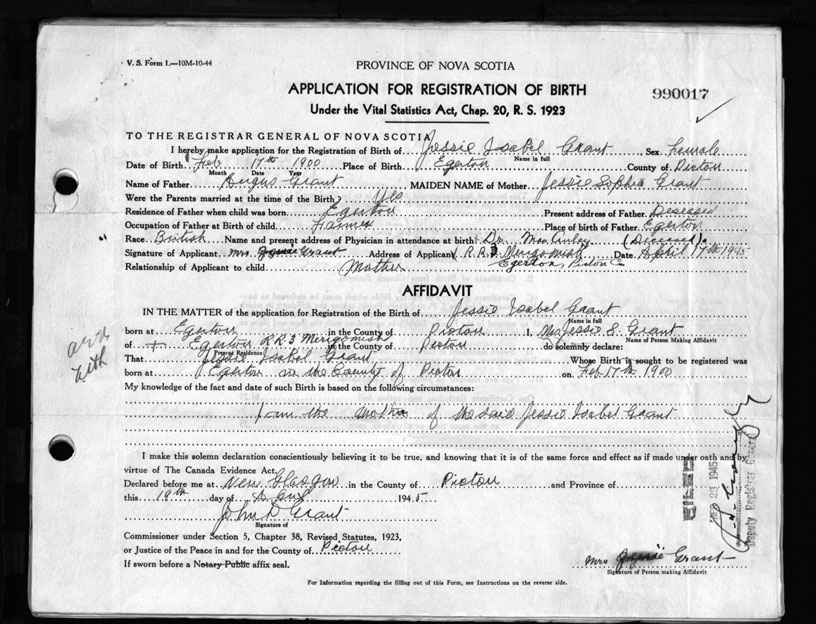 V. S. Form 1.—10M-10-44
PROVINCE OF NOVA SCOTIA
APPLICATION FOR REGISTRATION OF BIRTH
990017
Under the Vital Statistics Act, Chap. 20, R. S. 1923
TO THE REGISTRAR GENERAL OF NOVA SCOTIA
I hereby make application for the Registration of Birth of Jessie Isabel Grant Sex Female
Name in full
Date of Birth Feb 17th 1900 Place of Birth Egerton County of Pictou
Month Date Year
Name of Father Angus Grant MAIDEN NAME of Mother Jessie Sophia Grant
Were the Parents married at the time of the Birth? Yes
Residence of Father when child was born Egerton Present address of Father Deseased
Occupation of Father at Birth of child Farmer Place of birth of Father Egerton
Race British Name and present address of Physician in attendance at birth Dr. (Deceased).
Signature of Applicant Mrs Grant Address of Applicant R.R.3 Merigomish Date April 17th 1945
Egerton, Pictou Co
Relationship of Applicant to child Mother
AFFIDAVIT
IN THE MATTER of the application for Registration of the Birth of Jessie Isabel Grant
Name in full
born at Egerton in the County of Pictou I, Mrs Jessie S. Grant
Name of Person Making Affidavit
of Egerton RR3 Merigomish in the County of Pictou do solemnly declare:
Present Residence
That Jessie Isabel Grant Whose Birth is sought to be registered was
born at Egerton in the County of Pictou on Feb 17th 1900
My knowledge of the fact and date of such Birth is based on the following circumstances:
I am the mother of the said Jessie Isabel Grant
I make this solemn declaration conscientiously believing it to be true, and knowing that it is of the same force and effect as if made under oath and by
virtue of The Canada Evidence Act.
Declared before me at New Glasgow in the County of Pictou and Province of
this 19th day of April 1945
John D Grant
Signature of
Commissioner under Section 5, Chapter 38, Revised Statutes, 1923,
or Justice of the Peace in and for the County of Pictou
If sworn before a Notary Public affix seal.
Mrs Grant
Signature of Person making Affidavit
For Information regarding the filling out of this Form, see Instructions on the reverse side.
FILED
1945
Deputy Registrar General